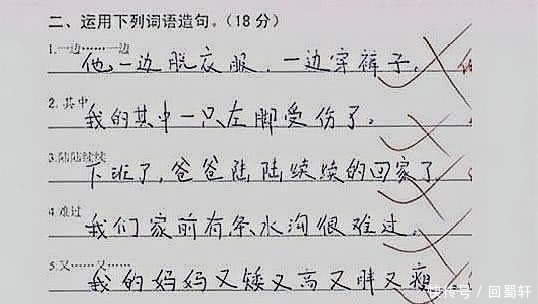 二、运用下列词语造句。（18分）
1.一边……一边
他一边脱衣服，一边穿裤子。
2.其中
我的其中一只左脚受伤了。
3.陆陆续续
下班了，爸爸陆陆续续的回家了
4.难过
我们家前有条水沟很难过。
5.又……又……
我的妈妈又矮又高又胖又瘦
快传号 / 回蜀轩